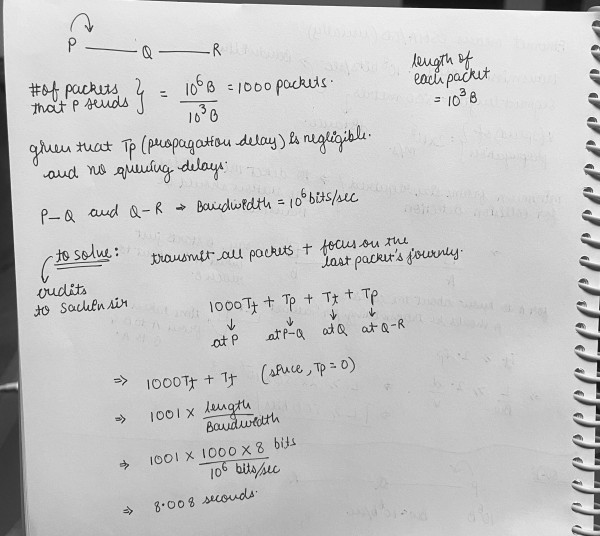 P ——— Q ——— R
# of packets that P sends } = 10⁶ B / 10³ B = 1000 packets.
length of
each packet
= 10³ B
given that Tp (propagation delay) is negligible.
and no queuing delays.
P–Q and Q–R ⇒ Bandwidth = 10⁶ bits/sec
to solve: transmit all packets + focus on the
last packet's journey.
credits
to Sachin sir
1000Tt + Tp + Tt + Tp
at P at P-Q at Q at Q-R
⇒ 1000Tt + Tt (since, Tp = 0)
⇒ 1001 × length / Bandwidth
⇒ 1001 × 1000 × 8 bits / 10⁶ bits/sec
⇒ 8.008 seconds.